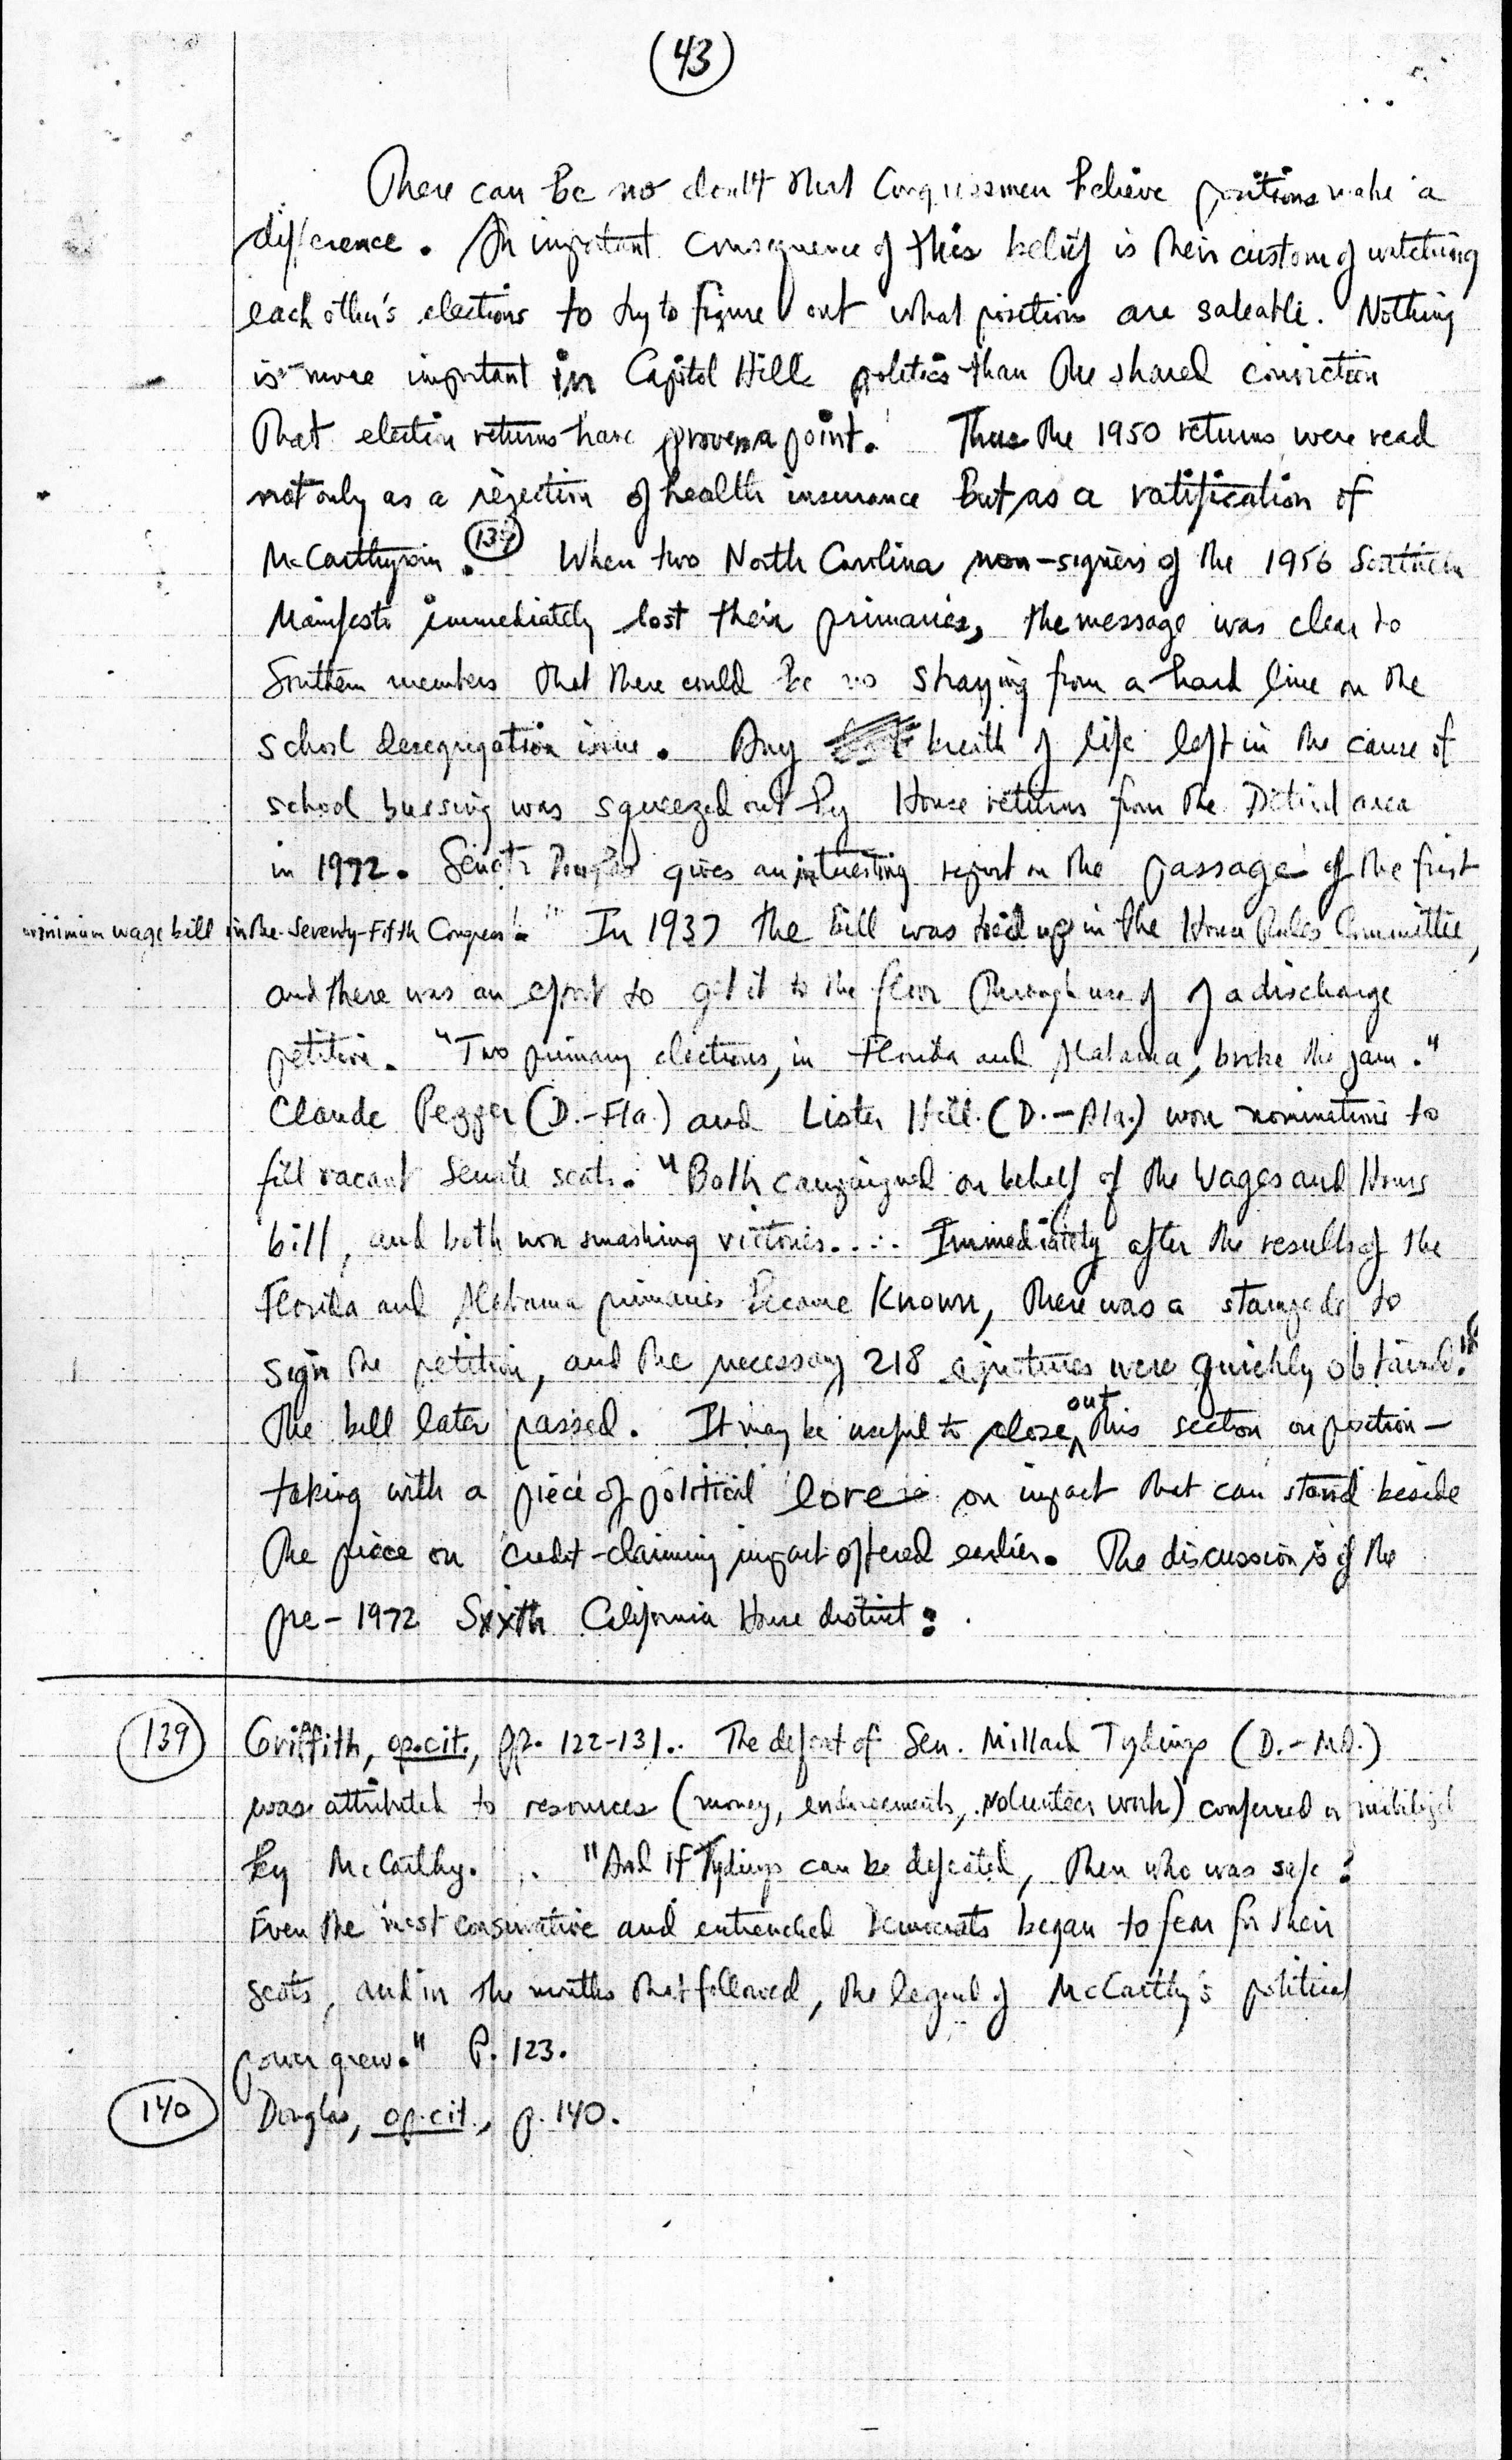 43
There can be no doubt that Congressmen believe positions make a
difference. An important consequence of this belief is their custom of watching
each other's elections to try to figure out what positions are saleable. Nothing
is more important in Capitol Hill politics than the shared conviction
that election returns have proven a point. Thus the 1950 returns were read
not only as a rejection of health insurance but as a ratification of
McCarthyism. 139 When two North Carolina non-signers of the 1956 Southern
Manifesto immediately lost their primaries, the message was clear to
Southern members that there could be no straying from a hard line on the
school desegregation issue. Any breath of life left in the cause of
school bussing was squeezed out by House returns from the Detroit area
in 1972. Senator Douglas gives an interesting report on the passage of the first
minimum wage bill in the Seventy-Fifth Congress. In 1937 the bill was tied up in the House Rules Committee,
and there was an effort to get it to the floor through use of of a discharge
petition. "Two primary elections, in Florida and Alabama, broke the jam."
Claude Pepper (D.-Fla.) and Lister Hill (D.-Ala.) won nominations to
fill vacant Senate seats. "Both campaigned on behalf of the Wages and Hours
bill, and both won smashing victories.... Immediately after the results of the
Florida and Alabama primaries became known, there was a stampede to
sign the petition, and the necessary 218 signatures were quickly obtained."
The bill later passed. It may be useful to close out this section on position-
taking with a piece of political lore on impact that can stand beside
the piece on credit-claiming impact offered earlier. The discussion is of the
pre-1972 Sixth California House district:
139 Griffith, op.cit., pp. 122-131. The defeat of Sen. Millard Tydings (D.-Md.)
was attributed to resources (money, endorsements, volunteer work) conferred or mobilized
by McCarthy. "And if Tydings can be defeated, then who was safe?
Even the most conservative and entrenched Democrats began to fear for their
seats, and in the months that followed, the legend of McCarthy's political
power grew." P. 123.
140 Douglas, op.cit., p. 140.